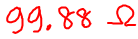 99.88 Ω